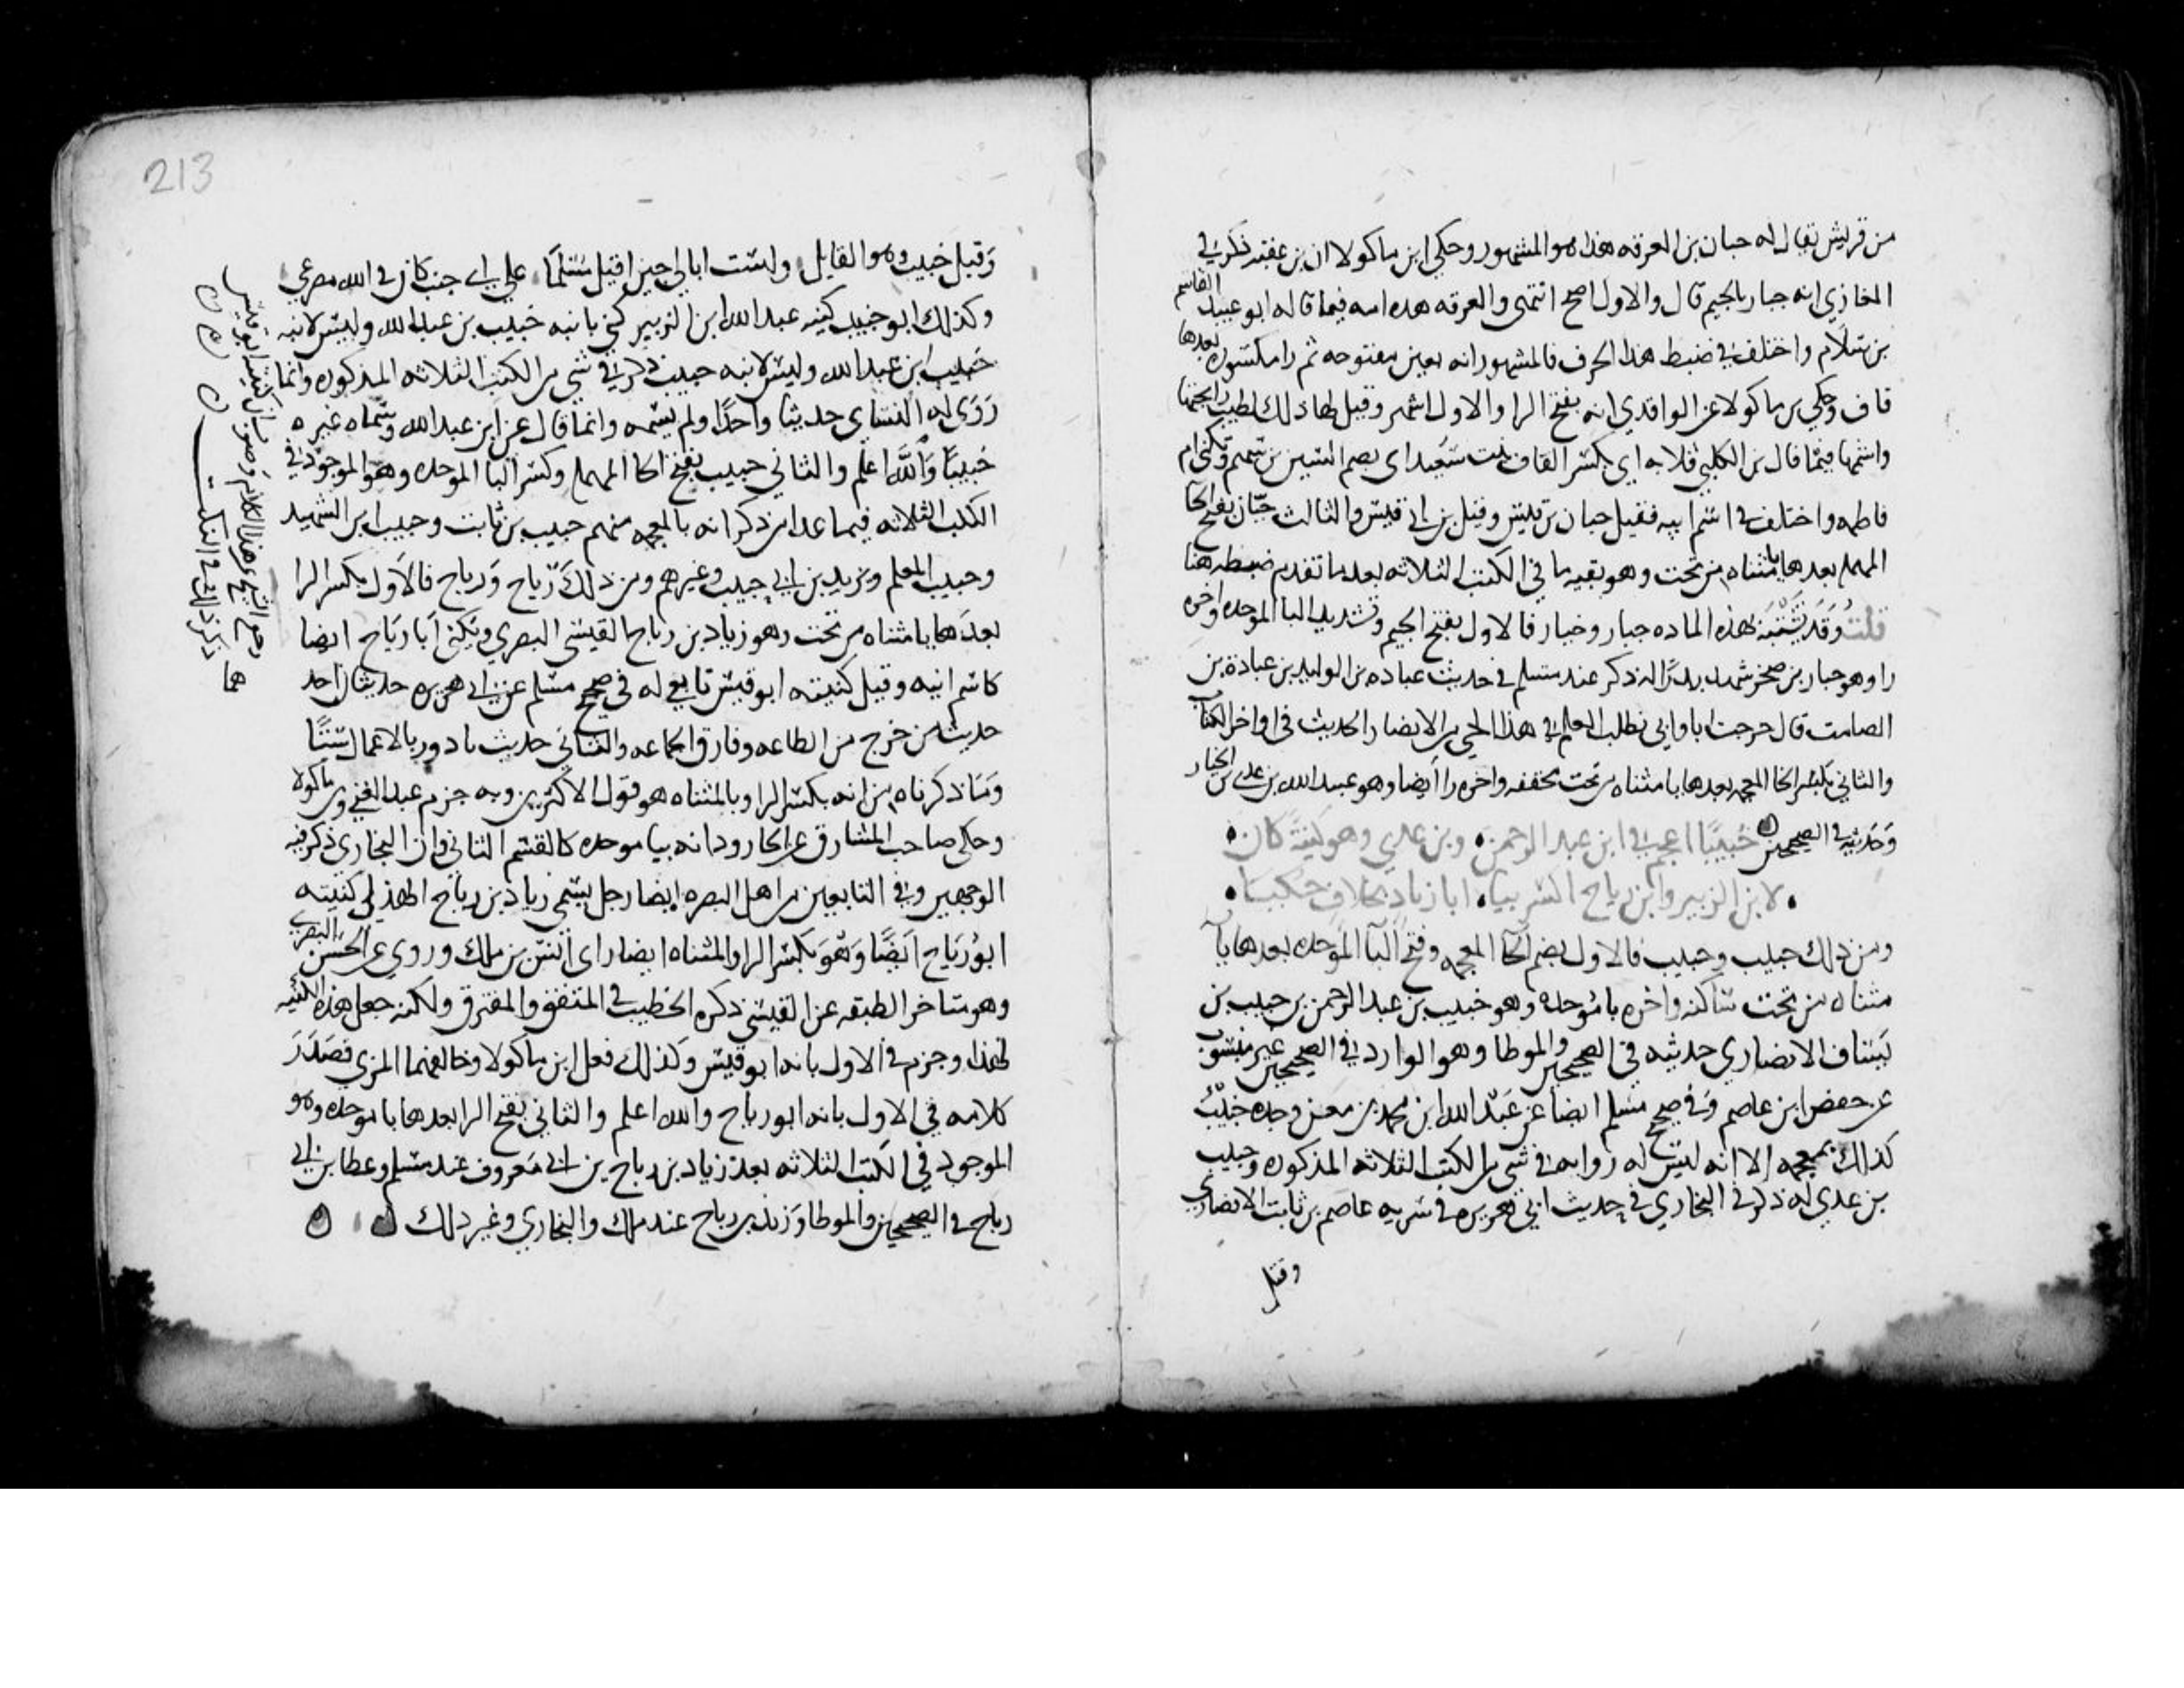 من قريش يقال له حبان بن العرقه هذا هو المشهور وحكى ابن ماكولا ان بن عقبه ذكر في
المغازي انه جبار بالجيم قال والاول اصح انتهى والعرقه هذه امه فيما قاله ابو عبيد القاسم
بن سلام واختلف في ضبط هذا الحرف فالمشهور انه بعين مفتوحه ثم را مكسوره بعدها
قاف وحكى بن ماكولا عن الواقدي انه بفتح الرا والاول اشهر وقيل لها ذلك لطيب رايحتها
واسمها فيما قال بن الكلبي قلابه اي بكسر القاف بنت سعيد اي بضم السين بن سهم وتكنى ام
فاطمه واختلف في اسم ابيه فقيل حبان بن قيس وقيل بن ابي قيس والثالث حيان بفتح الحا
المهمله بعدها يا مثناه من تحت وهو بقيه ما في الكتب الثلاثه بعد ما تقدم ضبطه هنا
قلت وقد يشتبه بهذه الماده جبار وخيار فالاول بفتح الجيم وتشديد البا الموحده واخره
را وهو جبار بن صخر شهد بدرا له ذكر عند مسلم في حديث عباده بن الوليد بن عبادة بن
الصامت قال خرجت انا وابي نطلب العلم في هذا الحي من الانصار الحديث في اواخر الكتاب
والثاني بكسر الخا المعجمه بعدها يا مثناه من تحت مخففه واخره را أيضا وهو عبيد الله بن عدي بن الخيار
وحديثه في الصحيحين
خبيبًا اعجم في ابن عبد الرحمن • وبن عدي وهو كنيةً كان •
• لابن الزبير وابن رياح اكسر بيا • ابا زياد بخلاف حكيا •
ومن ذلك خبيب وحبيب فالاول بضم الخا المعجمه وفتح البا الموحده بعدها يا
مثناه من تحت ساكنه واخره با موحده وهو خبيب بن عبد الرحمن بن خبيب بن
يساف الانصاري حديثه في الصحيحين والموطا وهو الوارد في الصحيحين غير منسوب
عن حفص ابن عاصم وفي صحيح مسلم ايضا عن عبد الله ابن محمد بن معن وجده خبيب
كذلك بمعجمه إلا انه ليس له روايه في شي من الكتب الثلاثه المذكوره وخبيب
بن عدي له ذكر في البخاري في حديث ابي هريره في سريه عاصم بن ثابت الانصاري
وقتل
213
وقتل خبيب وهو القايل ولست ابالي حين اقتل مسلمًا على اي جنب كان في الله مصرعي
وكذلك ابو خبيب كنيه عبد الله ابن الزبير كني بابنه خبيب بن عبد الله وليس لابنه
خبيب ابن عبد الله وليس لابنه خبيب ذكر في شي من الكتب الثلاثه المذكوره وانما
رَوَى له النساي حديثا واحدًا ولم يسمه وانما قال عن ابن عبد الله وسماه غيره
خبيبًا والله اعلم والثاني حبيب بفتح الحا المهمله وكسر البا الموحده وهو الموجود في
الكتب الثلاثه فيما عدا من ذكر انه بالمعجمه منهم حبيب بن ثابت وحبيب ابن الشهيد
وحبيب المعلم ويزيد بن ابي حبيب وغيرهم ومن ذلك رياح ورباح فالاول بكسر الرا
بعدها يا مثناه من تحت وهو زياد بن رياح القيسي البصري ويكنى أبا رياح ايضا
كاسم ابيه وقيل كنيته ابو قيس تابعي له في صحيح مسلم عن ابي هريره حديثان احد
حديث من خرج من الطاعه وفارق الجماعه والثاني حديث بادروا بالاعمال ستًا
وما ذكرناه من انه بكسر الرا وبالمثناه هو قول الاكثرين وبه جزم عبد الغني وبن ماكولا
وحكى صاحب المشارق عن ابن الجارود انه بيا موحده كالقسم الثاني وان البخاري ذكر فيه
الوجهين وفي التابعين من اهل البصره ايضا رجل يسمى زياد بن رياح الهذلي كنيته
ابو رياح ايضًا وهو بكسر الرا والمثناه ايضا راى انس بن ملك وروى عن الحسن البصري
وهو متاخر الطبقه عن القيسي ذكره الخطيب في المتفق والمفترق ولكنه جعل هذه الكنيه
لهذا وجزم في الاول بانه ابو قيس وكذلك فعل ابن ماكولا وخالفهما المزي فصدر
كلامه في الاول بانه ابو رياح والله اعلم والثاني بفتح الرا بعدها با موحده وهو
الموجود في الكتب الثلاثه بعد زياد بن رياح بن ابي معروف عند مسلم وعطا بن ابي
رباح في الصحيحين والموطا وزيد بن رباح عند ملك والبخاري وغير ذلك
رجح الشيخ هذا الكلام وصوب ان كنيته ابو قيس
كما ذكر ذلك في النكت